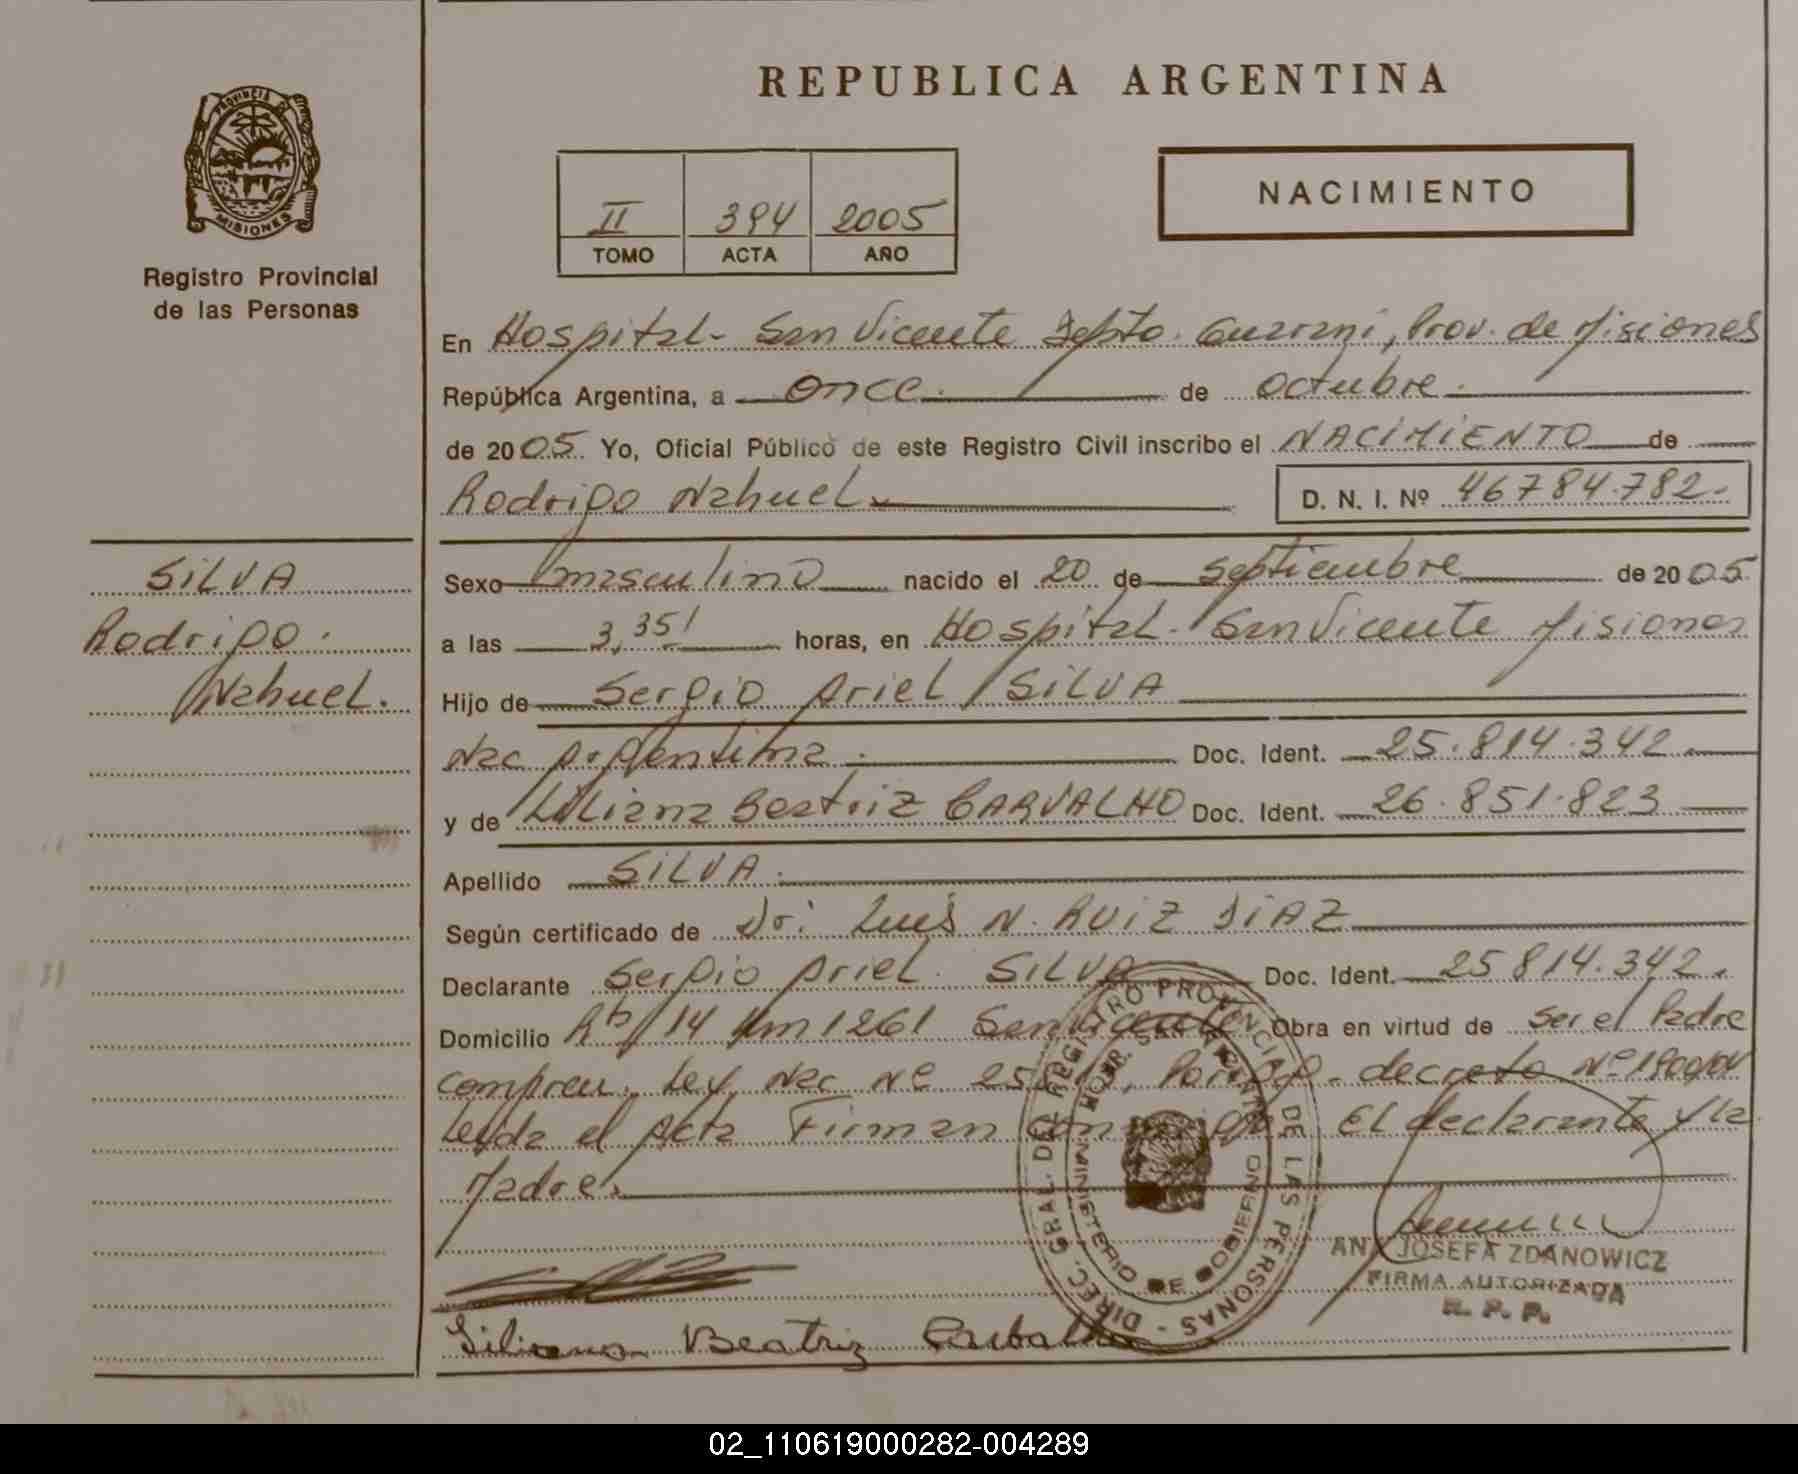 REPUBLICA ARGENTINA
PROVINCIA DE
MISIONES
Registro Provincial
de las Personas
II 394 2005
TOMO ACTA AÑO
NACIMIENTO
En Hospital - San Vicente Depto. Guarani, Prov. de Misiones
República Argentina, a once de octubre.
de 2005. Yo, Oficial Público de este Registro Civil inscribo el NACIMIENTO de
Rodrigo Nahuel.
D. N. I. Nº 46784.782.
SILVA
Rodrigo.
Nahuel.
Sexo masculino nacido el 20 de septiembre de 2005
a las 3,35' horas, en Hospital - San Vicente Misiones
Hijo de Sergio Ariel SILVA
Nac Argentina. Doc. Ident. 25.814.342
y de Liliana Beatriz CARVALHO Doc. Ident. 26.851.823
Apellido SILVA.
Según certificado de Dr: Luis N. RUIZ DIAZ
Declarante Sergio Ariel SILVA Doc. Ident. 25814.342.
Domicilio 14 km 1261 San Vicente Obra en virtud de ser el Padre
Ley Nac Nº decreto Nº
Leyda el Acta Firman El declarante y la
Madre.
DIREC. GRAL. DEL REGISTRO PROVINCIAL DE LAS PERSONAS
MINISTERIO DE GOBIERNO
JOSEFA ZDANOWICZ
FIRMA AUTORIZADA
R. P. P.
Liliana Beatriz
02_110619000282-004289